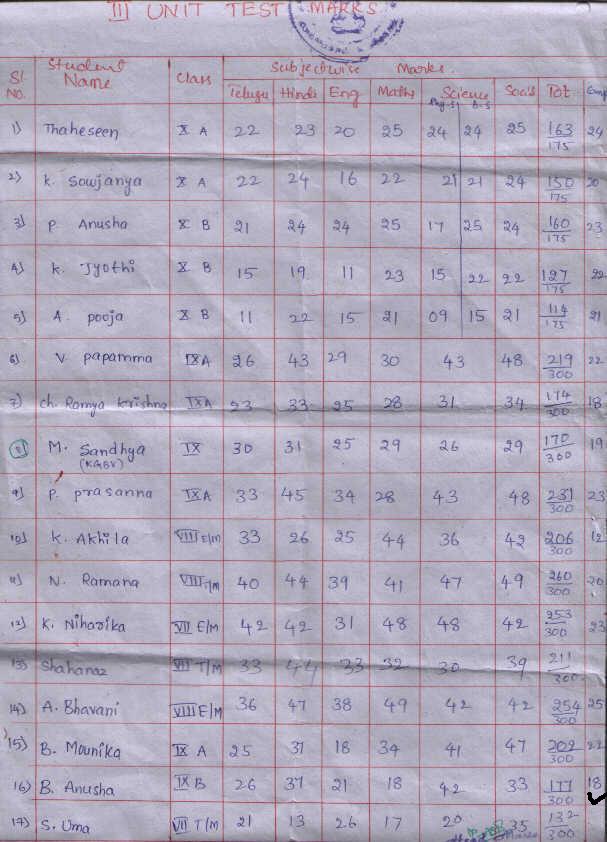 III UNIT TEST MARKS
Sl. No. Student Name Class Subjectwise Marks.
Telugu Hindi Eng Maths Science Soa's Tot Comp
Phy.S B.S
1) Thaheseen X A 22 23 20 25 24 24 25 163/175 24
2) K. Sowjanya X A 22 24 16 22 21 21 24 150/175 20
3) P. Anusha X B 21 24 24 25 17 25 24 160/175 23
4) K. Jyothi X B 15 19 11 23 15 22 22 127/175 22
5) A. pooja X B 11 22 15 21 09 15 21 114/175 21
6) V. papamma IX A 26 43 29 30 43 48 219/300 22
7) Ch. Ramya Krishna IX A 23 33 25 28 31 34 174/300 18
8) M. Sandhya (KGBV) IX 30 31 25 29 26 29 170/300 19
9) P. prasanna IX A 33 45 34 28 43 48 231/300 23
10) K. Akhila VIII E/M 33 26 25 44 36 42 206/300 12
11) N. Ramana VIII T/M 40 44 39 41 47 49 260/300 20
12) K. Niharika VII E/M 42 42 31 48 48 42 253/300 23
13) Shahanaz VII T/M 33 44 33 32 30 39 211/300
14) A. Bhavani VIII E/M 36 47 38 49 42 42 254/300 25
15) B. Mounika IX A 25 37 18 34 41 47 202/300 22
16) B. Anusha IX B 26 37 21 18 42 33 177/300 18
17) S. Uma VII T/M 21 13 26 17 20 35 132/300